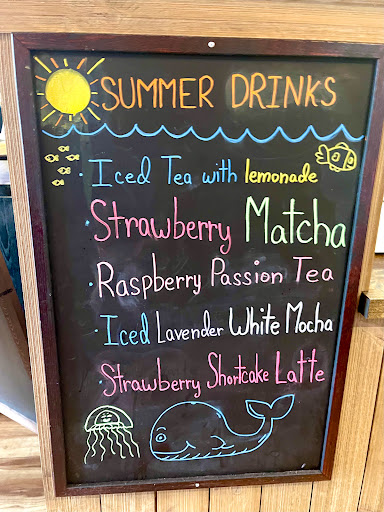 SUMMER DRINKS
· Iced Tea with lemonade
· Strawberry Matcha
· Raspberry Passion Tea
· Iced Lavender White Mocha
· Strawberry Shortcake Latte